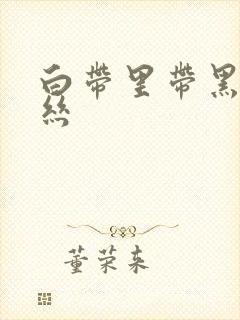 白带里带黑
丝
董荣来